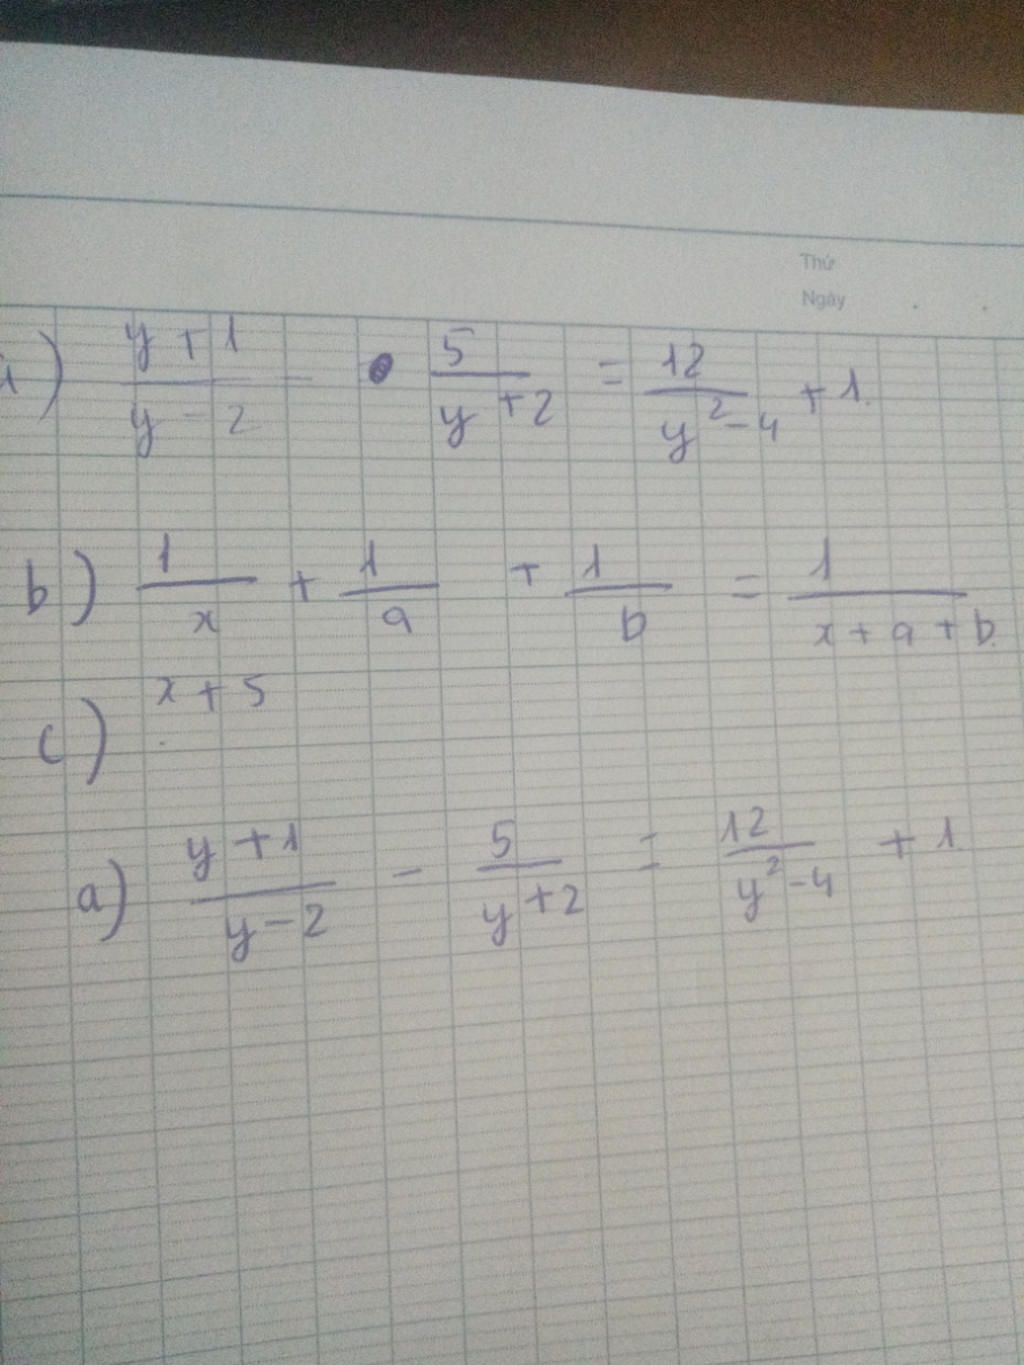 Thứ
Ngày
a) \frac{y+1}{y-2} - \frac{5}{y+2} = \frac{12}{y^2-4} + 1.
b) \frac{1}{x} + \frac{1}{a} + \frac{1}{b} = \frac{1}{x+a+b}
c) x+5
a) \frac{y+1}{y-2} - \frac{5}{y+2} = \frac{12}{y^2-4} + 1